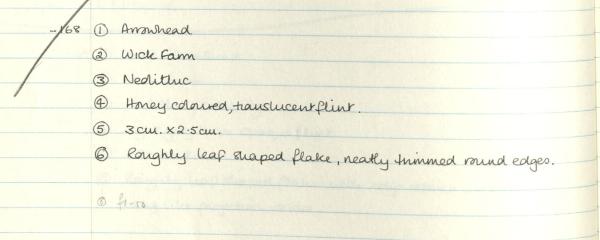 -168 ① Arrowhead
② Wick Farm
③ Neolithic
④ Honey coloured, translucent flint.
⑤ 3cm. x 2.5cm.
⑥ Roughly leaf shaped flake, neatly trimmed round edges.
⑧ £1-50